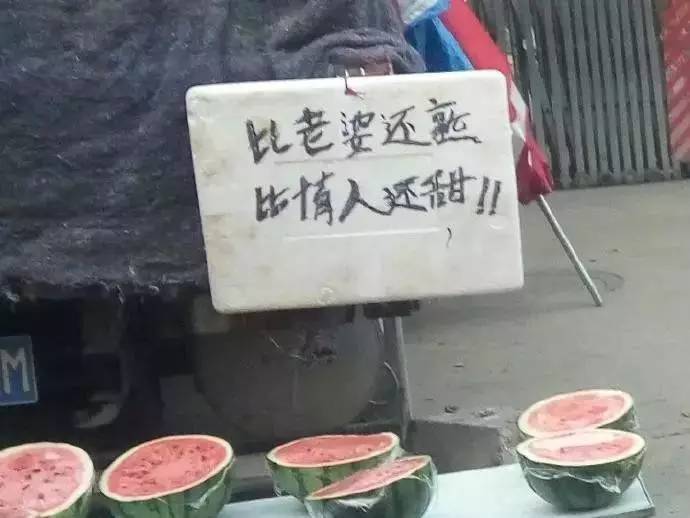 比老婆还熟
比情人还甜!!
M